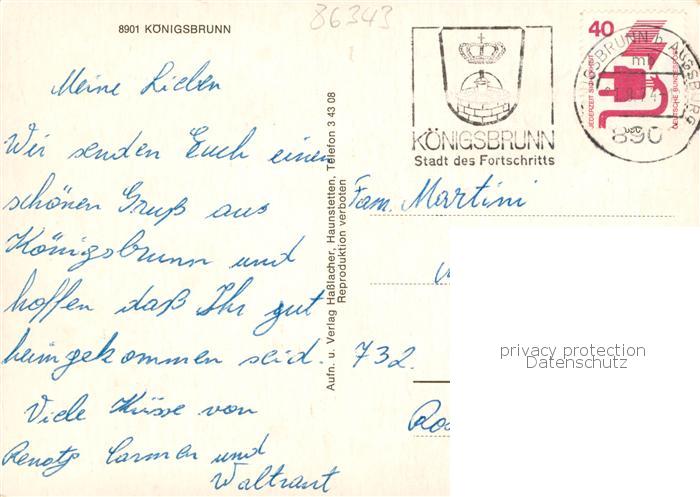 8901 KÖNIGSBRUNN
86343
Meine Lieben
Wir senden Euch einen
schönen Gruß aus
Königsbrunn und
hoffen daß Ihr gut
heimgekommen seid.
Viele Küsse von
Renate Carmen und
Waltraut
Aufn. u. Verlag Haßlacher, Haunstetten, Telefon 3 43 08
Reproduktion verboten
KÖNIGSBRUNN
Stadt des Fortschritts
40
JEDERZEIT SICHERHEIT
DEUTSCHE BUNDESPOST
KÖNIGSBRUNN b AUGSBURG
mb
890
Fam. Martini
732.
privacy protection
Datenschutz